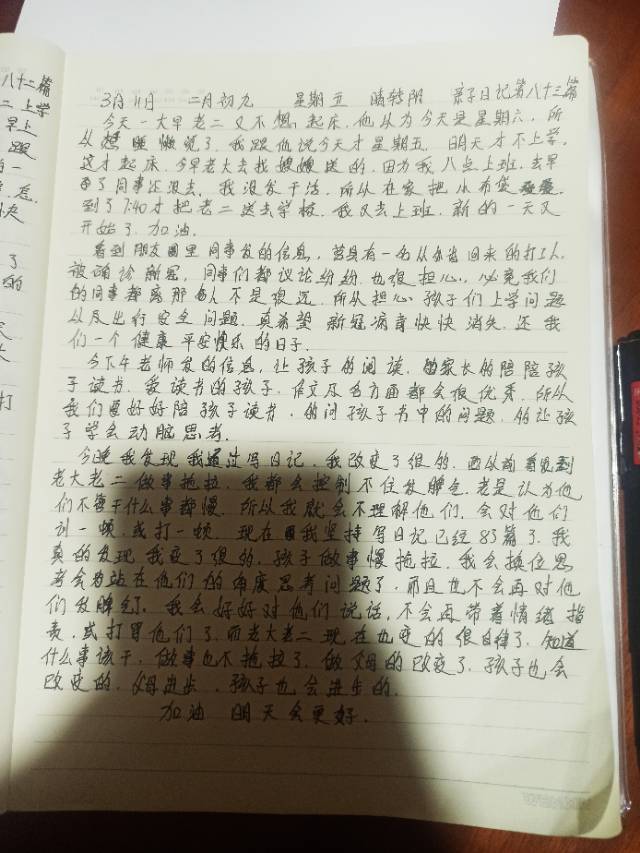 八十二篇
二上学
早上
跟
的一
怎
快
了
的
打
3月11日 二月初九 星期五 晴转阴 亲子日记第八十三篇
今天一大早老二又不想起床，他认为今天是星期六，所
以想睡懒觉了，我跟他说今天才星期五，明天才不上学，
这才起床，今早老大去找嫂嫂送的，因为我八点上班，去早
了同事还没去，我没发干活，所以在家把小布袋
到了7:40才把老二送去学校，我又去上班，新的一天又
开始了，加油。
看到朋友圈里同事发的信息，莒县有一名从外出回来的打工人
被确诊新冠，同事们都议论纷纷，也很担心，必竟我们
的同事都离那名人不是很远，所以担心孩子们上学问题
以及出行安全问题，真希望新冠病毒快快消失，还我
们一个健康平安快乐的日子。
今下午老师发的信息，让孩子的阅读，的家长的陪陪孩
子读书，爱读书的孩子，作文及各方面都会很优秀，所以
我们要好好陪孩子读书，的问孩子书中的问题，的让孩
子学会动脑思考。
今晚我发现我通过写日记，我改变了很的，西以前看见到
老大老二做事拖拉，我都会控制不住发脾气，老是认为他
们不管干什么事都慢，所以我就会不理解他们，会对他们
训一顿，或打一顿，现在我坚持写日记已经83篇了，我
真的发现我变了很的，孩子做事慢拖拉，我会换位思
考会站在他们的角度思考问题了，而且也不会再对他
们发脾气了，我会好好对他们说话，不会再带着情绪指
责，或打骂他们了，而老大老二现在也变的很自律了，知道
什么事该干，做事也不拖拉了，做父母的改变了，孩子也会
改变的，父母进步，孩子也会进步的。
加油 明天会更好。